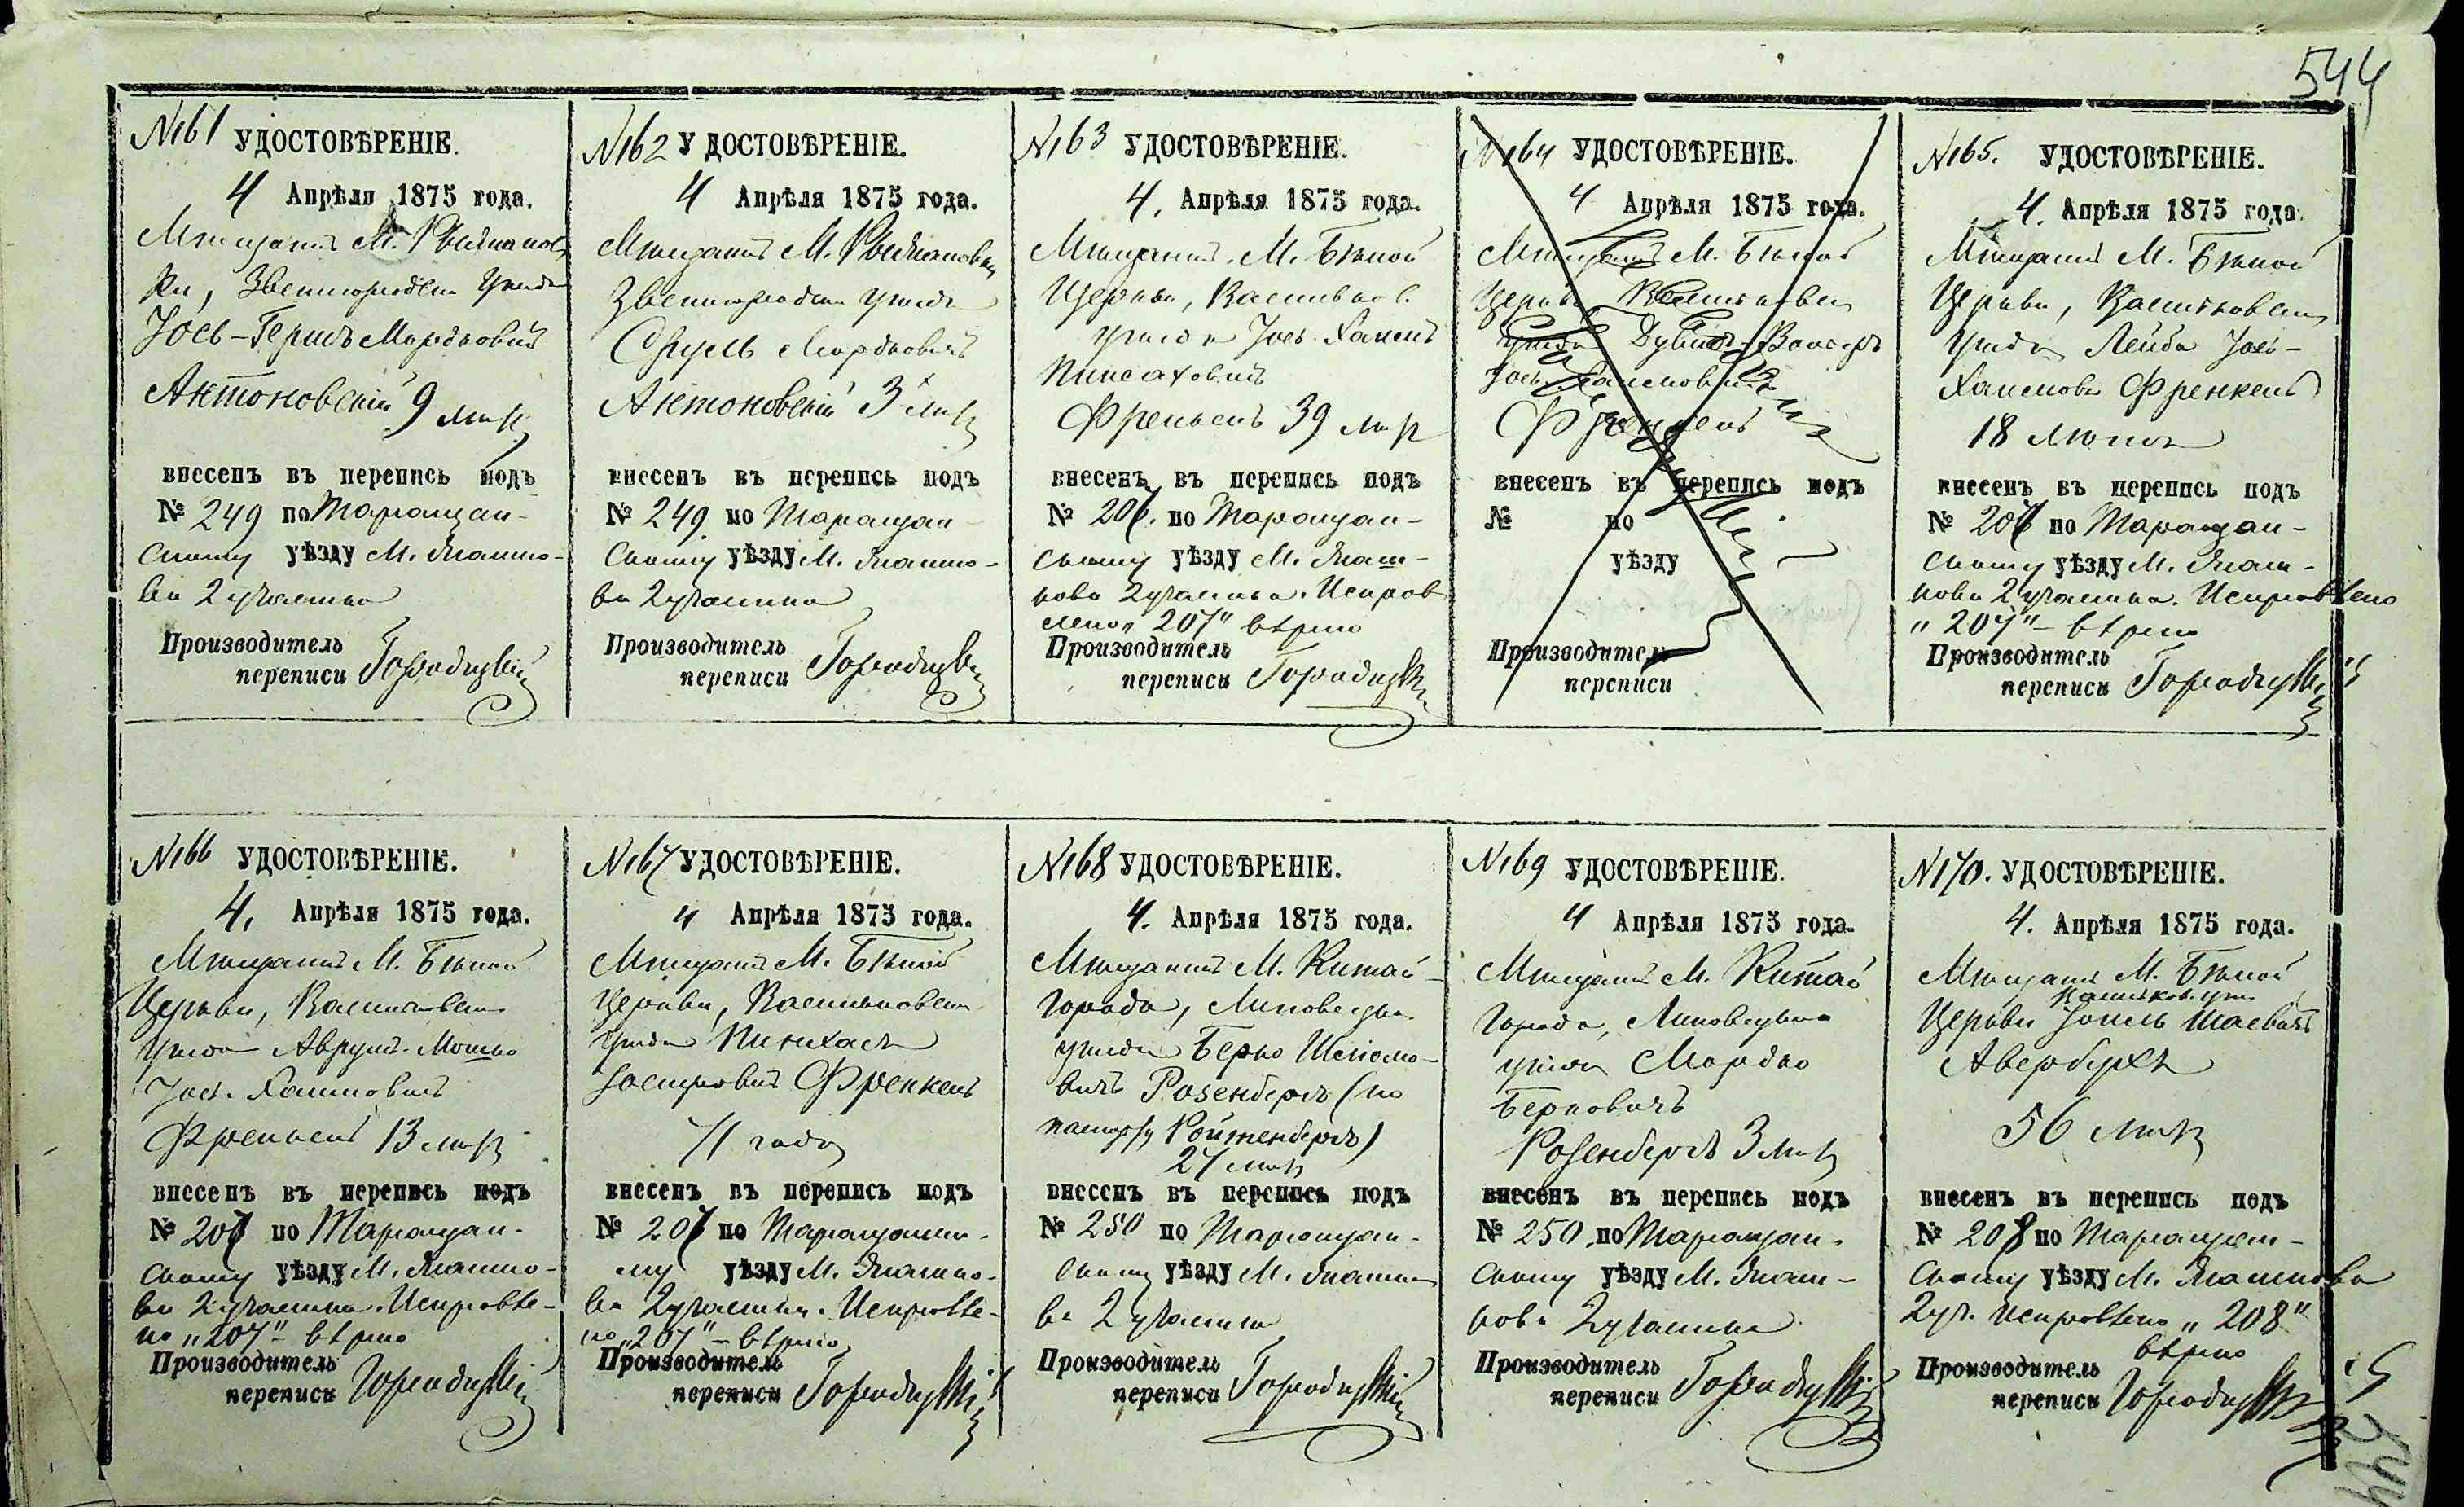 544
№161 УДОСТОВѢРЕНІЕ.
4 Апрѣля 1875 года.
Мѣщанинъ М. Рыжановъ
ки, Звенигородск. уѣзда
Іось-Гершъ Мордковичъ
Актоновскій 9 лѣтъ
внесенъ въ перепись подъ
№ 249 по Таращан-
скому уѣзду М. Ял
2 участка
Производитель
переписи Городецкій
№162 УДОСТОВѢРЕНІЕ.
4 Апрѣля 1875 года.
Мѣщанинъ М. Рыжановки
Звенигородск. уѣзда
Сруль Мордковичъ
Актоновскій 3 лѣтъ
внесенъ въ перепись подъ
№ 249 по Таращан-
скому уѣзду М.
2 участка
Производитель
переписи Городецкій
№163 УДОСТОВѢРЕНІЕ.
4. Апрѣля 1875 года.
Мѣщанинъ М. Бѣлой
Церкви, Васильков.
уѣзда Іось-Хаимъ
Пинсаховичъ
Френкель 39 лѣтъ
внесенъ въ перепись подъ
№ 207. по Таращан-
скому уѣзду М.
2 участка. Исправ
лено „207" вѣрно
Производитель
переписи Городецкій
№164 УДОСТОВѢРЕНІЕ.
4 Апрѣля 1875 года.
Мѣщанинъ М. Бѣлой
Церкви Васильковск
уѣзда
Іось Хаимовичъ
Френкель
внесенъ въ перепись подъ
№ по
уѣзду
Производитель
переписи
№165. УДОСТОВѢРЕНІЕ.
4. Апрѣля 1875 года.
Мѣщанинъ М. Бѣлой
Церкви, Васильковск
уѣзда Лейба Іось-
Хаимовъ Френкель
18 лѣтъ
внесенъ въ перепись подъ
№ 207 по Таращан-
скому уѣзду М.
2 участка. Исправлено
„207" – вѣрно
Производитель
переписи Городецкій
№166 УДОСТОВѢРЕНІЕ.
4. Апрѣля 1875 года.
Мѣщанинъ М. Бѣлой
Церкви, Васильковск
уѣзда Аврумъ-Мошко
Іось-Хаимовичъ
Френкель 13 лѣтъ
внесенъ въ перепись подъ
№ 207 по Таращан-
скому уѣзду М.
2 участка. Исправле-
но „207" – вѣрно
Производитель
переписи Городецкій
№167 УДОСТОВѢРЕНІЕ.
4 Апрѣля 1875 года.
Мѣщанинъ М. Бѣлой
Церкви, Васильковск
уѣзда Пинхасъ
Френкель
71 года
внесенъ въ перепись подъ
№ 207 по Таращанско-
му уѣзду М.
2 участка. Исправле-
но „207" – вѣрно
Производитель
переписи Городецкій
№168 УДОСТОВѢРЕНІЕ.
4. Апрѣля 1875 года.
Мѣщанинъ М. Китай-
Города, Липовецка
уѣзда Берко Шеломо-
вичъ Розенбергъ (по
паспорту Ройтенбергъ)
27 лѣтъ
внесенъ въ перепись подъ
№ 250 по Таращан-
скому уѣзду М.
2 участка
Производитель
переписи Городецкій
№169 УДОСТОВѢРЕНІЕ.
4 Апрѣля 1875 года.
Мѣщанинъ М. Китай
Города, Липовецка
уѣзда Мордко
Берковичъ
Розенбергъ 3 лѣтъ
внесенъ въ перепись подъ
№ 250 по Таращан-
скому уѣзду М.
2 участка
Производитель
переписи Городецкій
№170. УДОСТОВѢРЕНІЕ.
4. Апрѣля 1875 года.
Мѣщанинъ М. Бѣлой
Васильков. уѣз.
Церкви Іоиль Шаевичъ
Авербухъ
56 лѣтъ
внесенъ въ перепись подъ
№ 208 по Таращан-
скому уѣзду М.
2 уч. Исправлено „208"
вѣрно
Производитель
переписи Городецкій